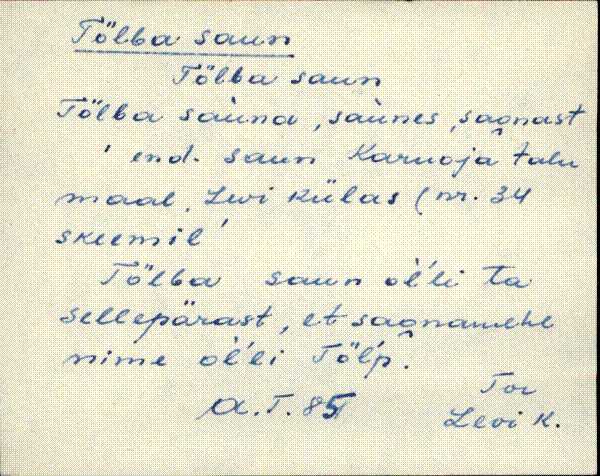 Tölba saun
Tölba saun
Tölba sàuna, sàunes, saQnast
' end. saun Karuoja talu
maal, Levi külas (nr. 34
skeemil'
Tölba saun òl'li ta
sellepärast, et saunamehe
nime òl'li Töl'p.
A.T. 85
Tor
Levi k.